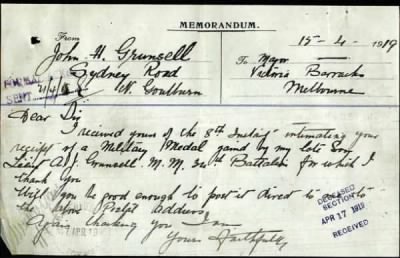 MEMORANDUM.
15-4-1919
From
John H. Grunsell
Sydney Road
N. Goulburn
To Major
Victoria Barracks
Melbourne
FORMAL
SENT 21/4/19
Dear Sir
I received yours of the 8th Inst intimating your
receipt of a Military Medal gained by my late Son
Lieut A. J. Grunsell. M. M. 34th Battalion for which I
thank You
Will you be good enough to post it direct to me to
the above Address
Again thanking you I am
Yours Faithfully
DECEASED
SECTION
APR 17 1919
RECEIVED